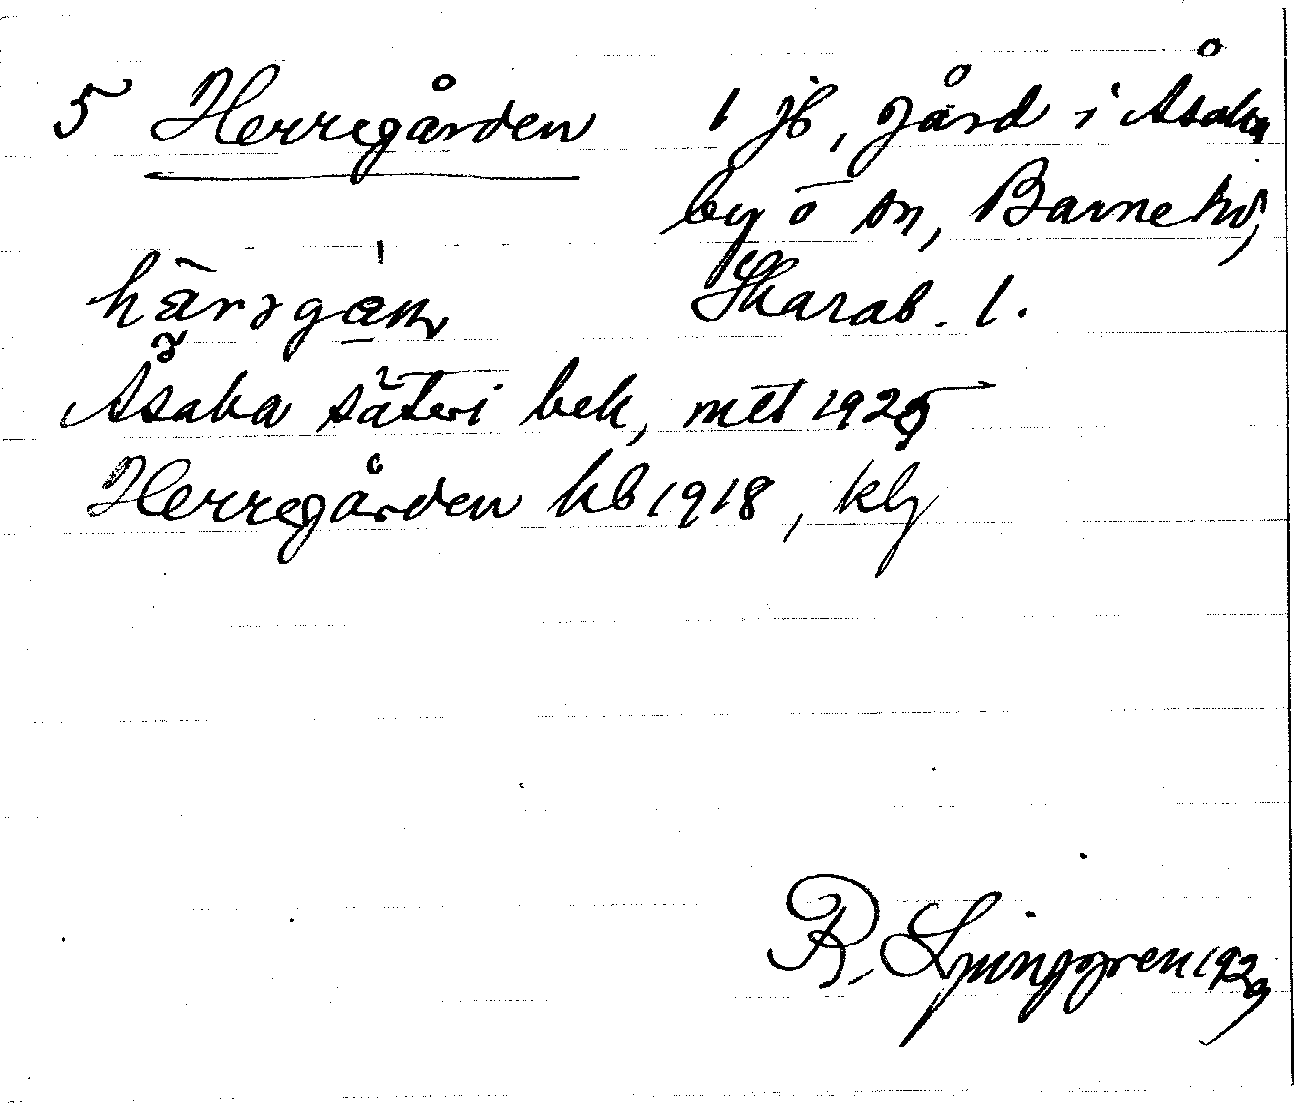 5 Herregården 1 jb, gård i Åsaka
by o sn, Barne hd,
härəgan Skarab. l.
Åsaka säteri bek, mtl 1925
Herregården kb 1918, kbg
R. Ljunggren 1929